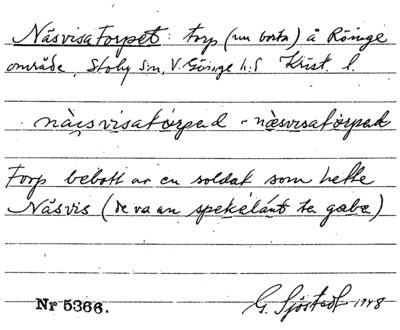 Näsvisatorpet: torp (nu borta) å Röinge
område, Stoby sn, V. Göinge h:d Krist. l.
nàsvisatórpad - nàsvisatorpad
Torp bebott av en soldat som hette
Näsvis (de va an spekelánt te gobe)
Nr 5366.
G. Sjöstedt 1948